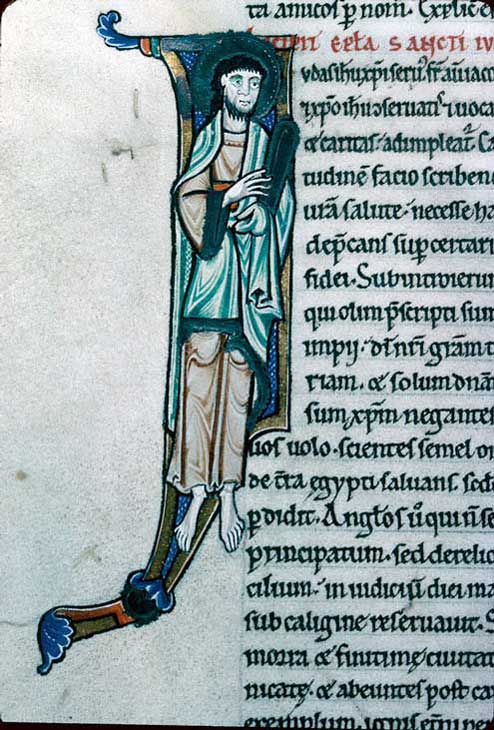 ta amicos p̄ nom̄. Explic̄ e
Incipit ep̄la sancti iu
vdas ih̄u xp̄i seru᾽. fr̄ aū iaco
i xp̄o ih̄u ɔseruatis ⁊ uoca
& caritas adimpleat̄. Ca
tudinē facio scriben
urā salute. necesse ha
dep̄cans sup̄ certari
fidei. Subintroierun
qui olim p̄scripti sun
impii. dī nr̄i grām t
riam. & solum dn̄a
sum xp̄m negante
uos uolo. scientes semel o
de tr̄a egypti saluans. sed
ꝑdidit. Angl̄os ū qui n̄ se
principatum. sed derelic
cilium. in iudiciū diei ma
sub caligine reseruauit. S
morra & finitimę ciuitat
nicatę. & abeuntes post ca
exemplum. ignis et̄ni pe